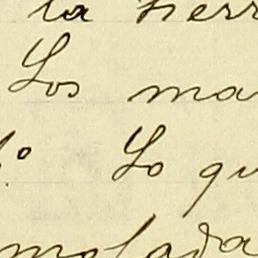 la tierr
Los ma
1.º Lo qu
molada